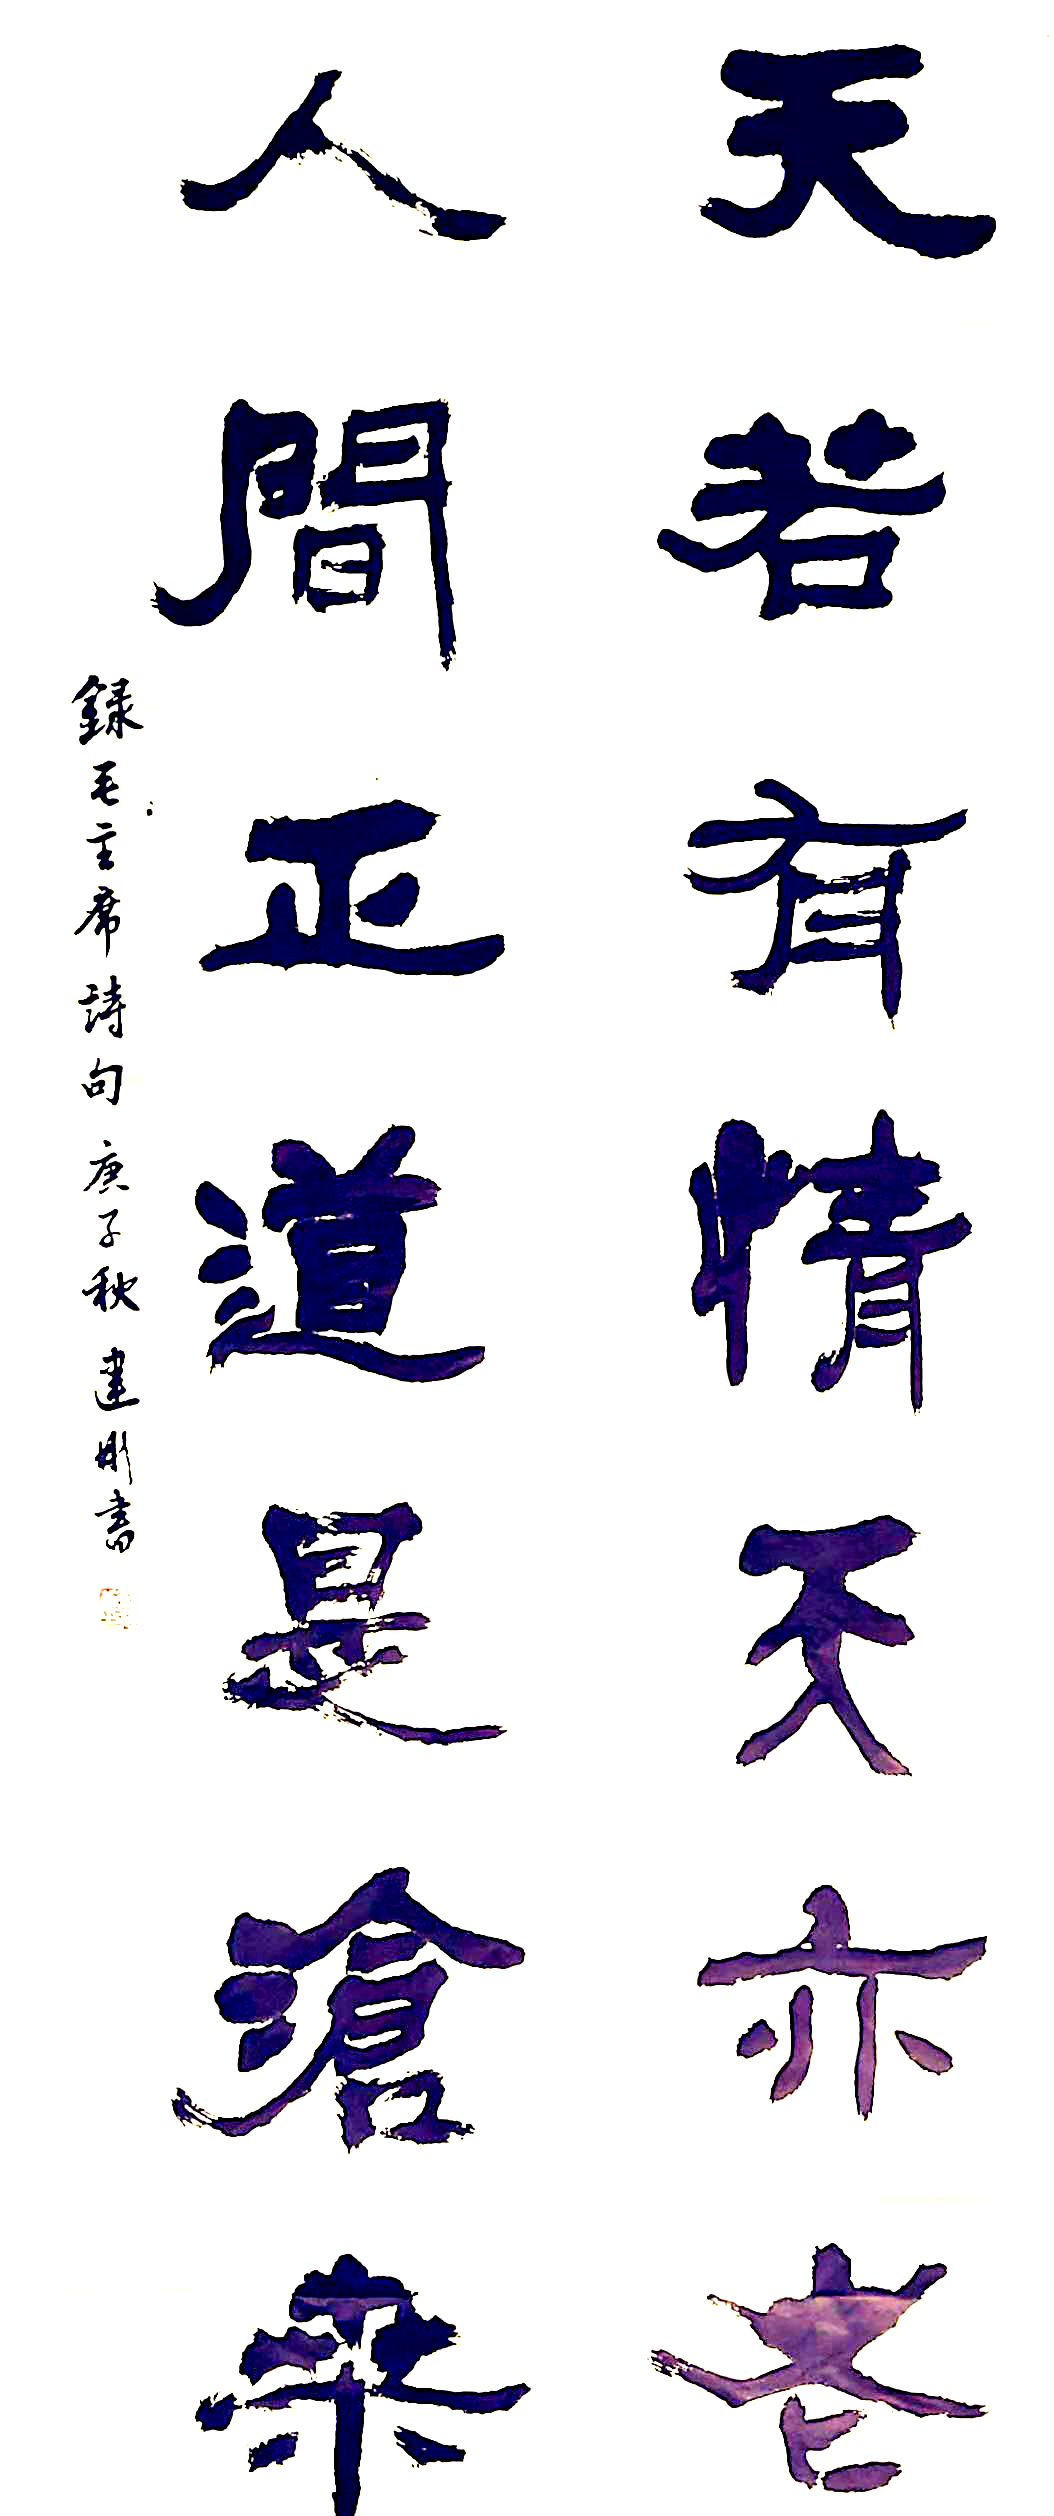 天若有情天亦老
人間正道是滄桑
録毛主席詩句庚子秋建彬書